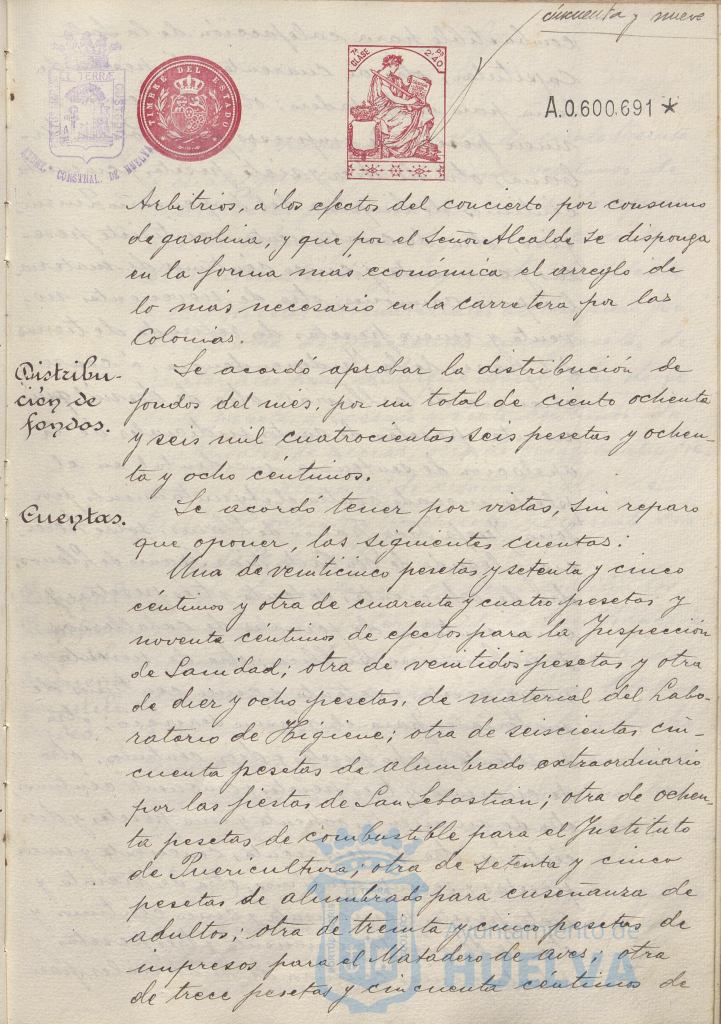 cincuenta y nueve
TIMBRE DEL ESTADO
7ª CLASE
Ps 2'40
A.0.600.691 *
CONSTNAL. DE HUELVA
Arbitrios, á los efectos del concierto por consumo
de gasolina, y que por el Señor Alcalde se disponga
en la forma más económica el arreglo de
lo más necesario en la carretera por las
Colonias.
Distribu-
ción de
fondos.
Se acordó aprobar la distribución de
fondos del més, por un total de ciento ochenta
y seis mil cuatrocientas seis pesetas y ochen-
ta y ocho céntimos.
Cuentas.
Se acordó tener por vistas, sin reparo
que oponer, las siguientes cuentas:
Una de veinticinco pesetas y setenta y cinco
céntimos y otra de cuarenta y cuatro pesetas y
noventa céntimos de efectos para la Inspección
de Sanidad; otra de veintidos pesetas y otra
de diez y ocho pesetas, de material del Labo-
ratorio de Higiene; otra de seiscientas cin-
cuenta pesetas de alumbrado extraordinario
por las fiestas de San Sebastian; otra de ochen-
ta pesetas de combustible para el Instituto
de Puericultura; otra de setenta y cinco
pesetas de alumbrado para enseñanza de
adultos; otra de treinta y cinco pesetas de
impresos para el Matadero de aves; otra
de trece pesetas y cincuenta céntimos de
Ayuntamiento de
HUELVA